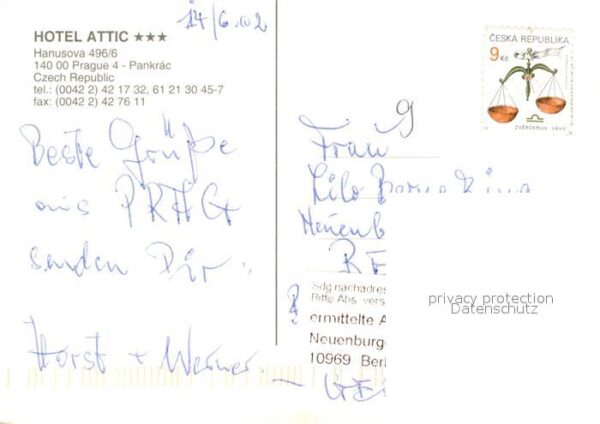 HOTEL ATTIC ★★★
Hanusova 496/6
140 00 Prague 4 - Pankrác
Czech Republic
tel.: (0042 2) 42 17 32, 61 21 30 45-7
fax: (0042 2) 42 76 11
14/6.02
Beste Grüße
aus PRAG
senden Dir
Horst + Werner
ČESKÁ REPUBLIKA
9 Kč
ZVĚROKRUH VÁHY
9
Frau
Lilo
Neuenb
Sdg nachadres
Bitte Abs vers
ermittelte A
Neuenburge
10969 Berl
privacy protection
Datenschutz